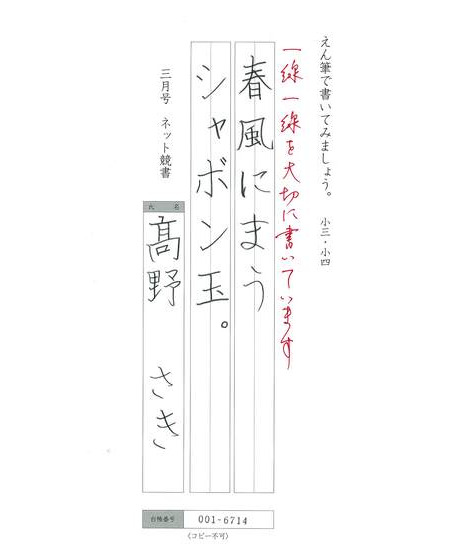 えん筆で書いてみましょう。　小三・小四
一線一線を大切に書いています
春風にまう
シャボン玉。
三月号　ネット競書
氏　名
髙野　さき
台帳番号
001-6714
(コピー不可)